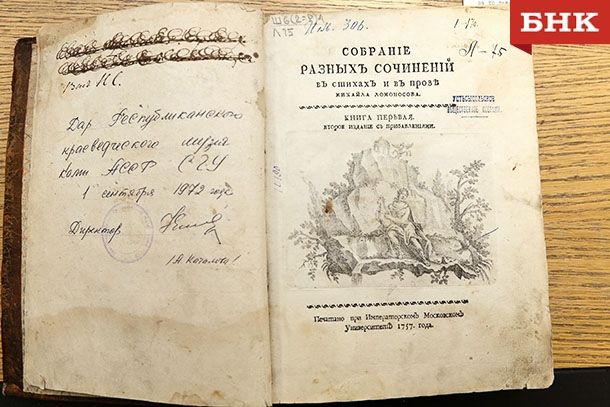 БНК
Вход КС.
Дар Республиканского
краеведческого музея
Коми АССР СГУ
1 сентября 1972 года
Директор
Ш6(2=Р)1
Л75
Инв. 306.
Л-75
СОБРАНІЕ
РАЗНЫХЪ СОЧИНЕНІЙ
ВЪ СТИХАХЪ И ВЪ ПРОЗѢ
МИХАЙЛА ЛОМОНОСОВА.
КНИГА ПЕРЬВАЯ.
ВТОРОЕ ИЗДАНІЕ СЪ ПРИБАВЛЕНІЯМИ.
УСТЬСЫСОЛЬСКОЕ
ОБЩЕСТВЕННОЕ СОБРАНІЕ
Печатано при Императорскомъ Московскомъ
Университетѣ 1757. года.